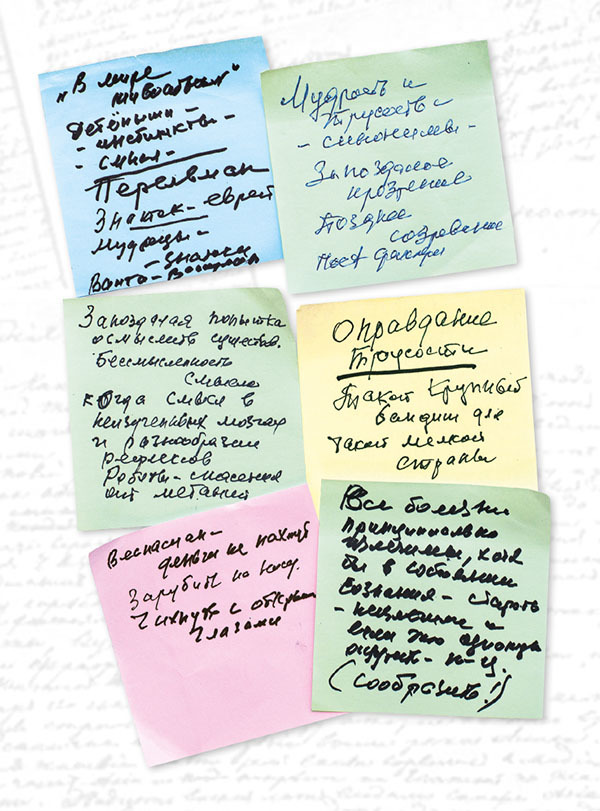 „В мире
животных"
Детёныши -
- инстинкты -
- смысл -
Перельман
Знаток - еврей
Мудрецы -
- знатоки
Ванга -
Мудрость и
трусость -
- синонимы -
Запоздалое
прозрение
Позднее
созревание
Пост фактум
Запоздалая попытка
осмыслить существов.
Бессмысленность
смысла
когда смысл в
неизученных мозгах
и разнообразии
рефлексов
Роботы - спасение
от метаний
Оправдание
трусости
Такой крупный
бандит для
такой мелкой
страны
Веспасиан -
деньги не пахнут
Зарубить на носу.
Чихнуть с открытыми
глазами
Все болезни
принципиально
излечимы, хотя
бы в состоянии
сознания - старость
- неизменно и
если это однажды
- п-ц.
(сообразить!)